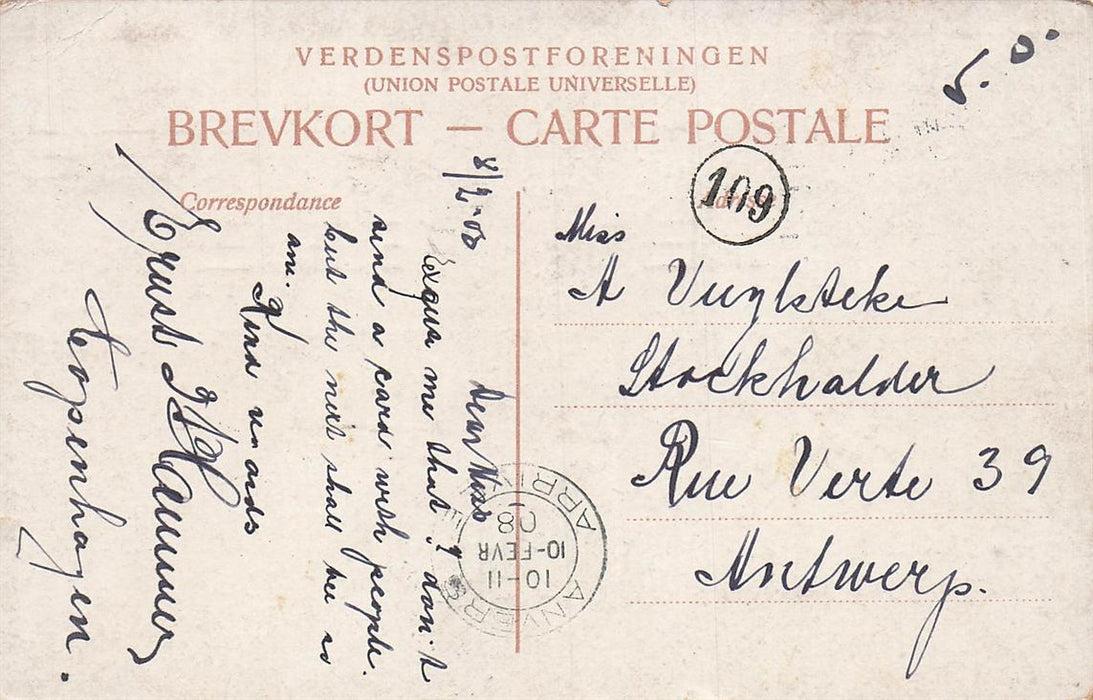 VERDENSPOSTFORENINGEN
(UNION POSTALE UNIVERSELLE)
BREVKORT — CARTE POSTALE
Correspondance
109
8/2-08
Dear Miss
Exqua me that I don't
send a card wish people.
but the next shall bee so
one.
Kind
Ernst
Kopenhagen.
Miss
A Vuylsteke
Stockhalder
Rue Verte 39
Antwerp.
ANVERS ARRIV
10-11
10-FEVR
08